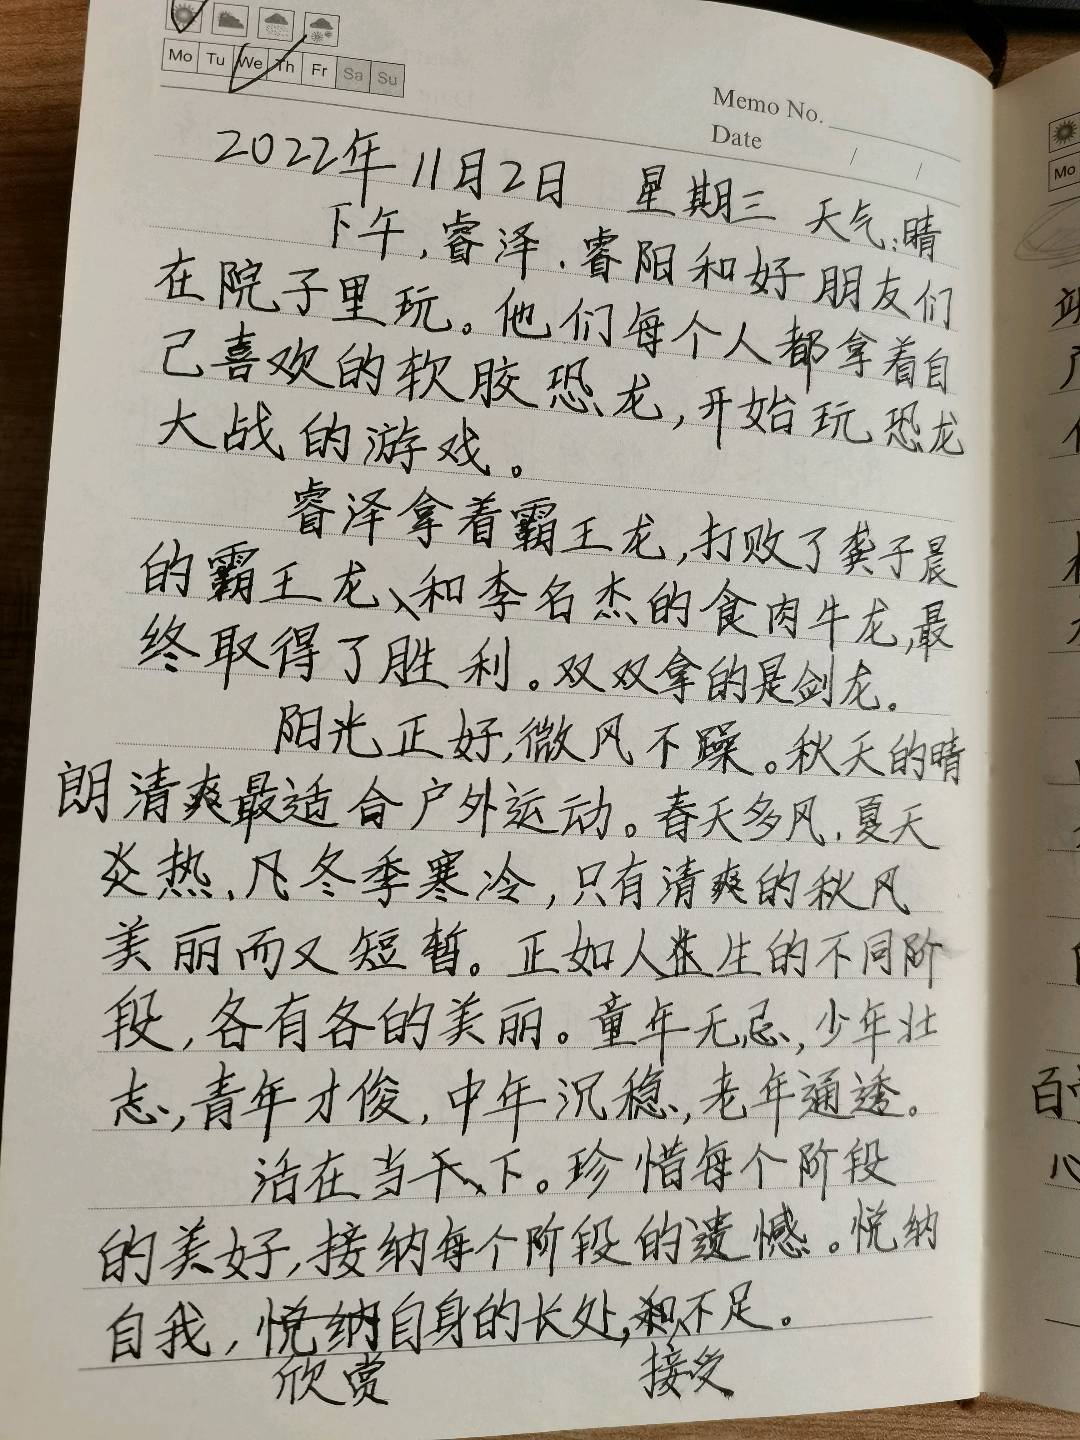 Mo Tu We Th Fr Sa Su
Memo No.
Date / /
2022年11月2日 星期三 天气:晴
下午,睿泽.睿阳和好朋友们
在院子里玩。他们每个人都拿着自
己喜欢的软胶恐龙,开始玩恐龙
大战的游戏。
睿泽拿着霸王龙,打败了龚子晨
的霸王龙、和李名杰的食肉牛龙,最
终取得了胜利。双双拿的是剑龙。
阳光正好,微风不躁。秋天的晴
朗清爽最适合户外运动。春天多风.夏天
炎热.冬季寒冷,只有清爽的秋风
美丽而又短暂。正如人生的不同阶
段,各有各的美丽。童年无忌,少年壮
志,青年才俊,中年沉稳,老年通透。
活在当下。珍惜每个阶段
的美好,接纳每个阶段的遗憾。悦纳
自我,悦纳自身的长处,和不足。
欣赏 接受
Mo